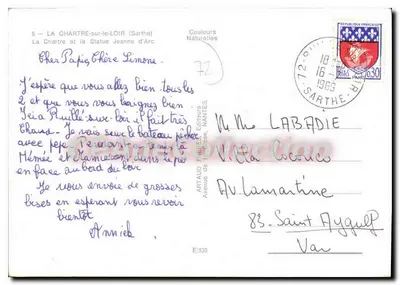 5 - LA CHARTRE-sur-le-LOIR (Sarthe)
La Chartre et la Statue Jeanne d'Arc
Couleurs
Naturelles
72
REPUBLIQUE FRANÇAISE
0,30
PARIS
18
16 -
1965
SARTHE
Cher Papig Chère Simone
J'espère que vous allez bien tous les
2 et que vous baignez bien
Ici à Ruillé sur-Loir il fait très
chaud. Je vais sur le bateau pêcher
avec pepe
Mémée et
en face au bord du Loir
Je vous envoie de grosses
bises en espérant vous revoir
bientôt
Annick
M Mme LABADIE
Villa
Av. Lamartine
83. Saint Aygulf
Var
ARTAUD
NANTES